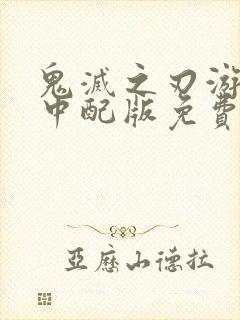 鬼滅之刃游
中配版免費
亞歷山德拉